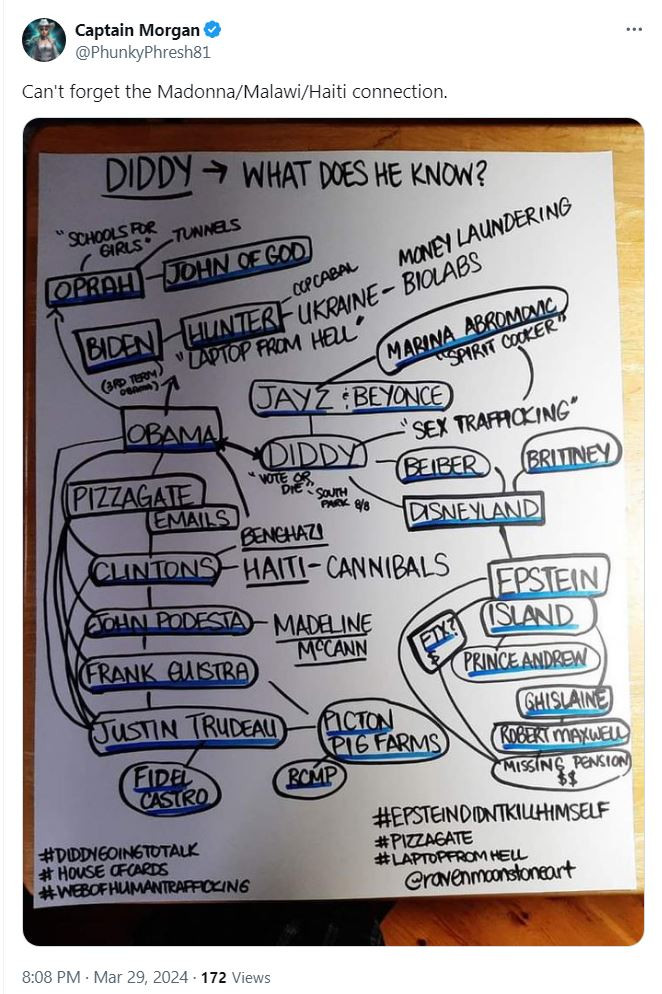 Captain Morgan
@PhunkyPhresh81
Can't forget the Madonna/Malawi/Haiti connection.
DIDDY → WHAT DOES HE KNOW?
"SCHOOLS FOR
GIRLS"
TUNNELS
OPRAH
JOHN OF GOD
BIDEN
HUNTER
CCP CABAL
UKRAINE -
MONEY LAUNDERING
BIOLABS
"LAPTOP FROM HELL"
(3RD TERM
OBAMA)
MARINA ABROMOVIC
"SPIRIT COOKER"
JAYZ & BEYONCE
OBAMA
DIDDY
"SEX TRAFFICKING"
"VOTE OR
DIE"
- SOUTH
PARK 8/8
BEIBER
BRITINEY
DISNEYLAND
PIZZAGATE
EMAILS
BENGHAZI
CLINTONS
HAITI - CANNIBALS
EPSTEIN
ISLAND
FTX?
$
PRINCE ANDREW
GHISLAINE
ROBERT MAXWELL
MISSING PENSION
$$
JOHN PODESTA
MADELINE
McCANN
FRANK GUISTRA
JUSTIN TRUDEAU
PICTON
PIG FARMS
FIDEL
CASTRO
RCMP
#DIDDYGOINGTOTALK
# HOUSE OF CARDS
#WEBOFHUMANTRAFFICKING
#EPSTEINDIDNTKILLHIMSELF
#PIZZAGATE
#LAPTOPFROM HELL
@ravenmoonstoneart
8:08 PM · Mar 29, 2024 · 172 Views